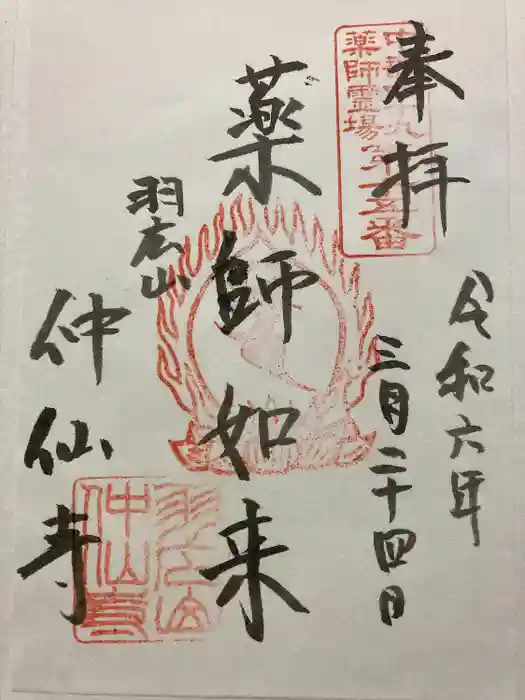 奉拝
中部四十九
薬師霊場第十五番
令和六年
三月二十四日
薬師如来
羽広山
仲仙寺
羽広山
仲仙寺